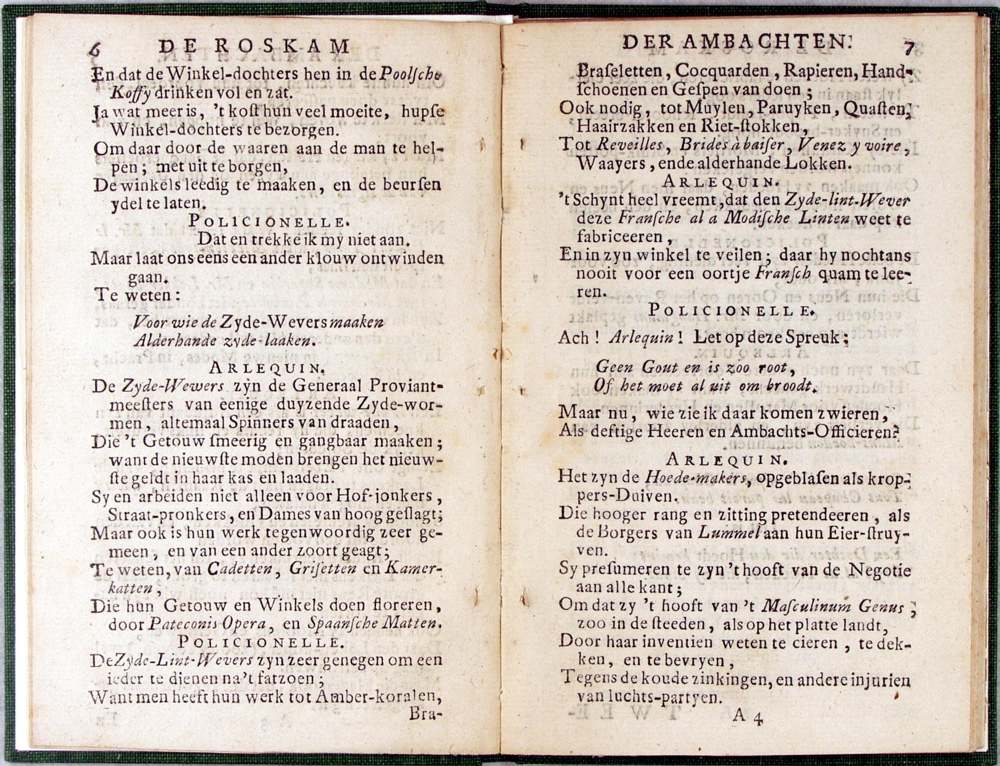 6 DE ROSKAM
En dat de Winkel-dochters hen in de Poolsche
Koffy drinken vol en zat.
Ja wat meer is, 't kost hun veel moeite, hupse
Winkel-dochters te bezorgen.
Om daar door de waaren aan de man te hel-
pen; met uit te borgen,
De winkels leedig te maaken, en de beursen
ydel te laten.
POLICIONELLE.
Dat en trekke ik my niet aan.
Maar laat ons eens een ander klouw ontwinden
gaan.
Te weten:
Voor wie de Zyde-Wevers maaken
Alderhande zyde-laaken.
ARLEQUIN.
De Zyde-Wewers zyn de Generaal Proviant-
meesters van eenige duyzende Zyde-wor-
men, altemaal Spinners van draaden,
Die 't Getouw smeerig en gangbaar maaken;
want de nieuwste moden brengen het nieuw-
ste geldt in haar kas en laaden.
Sy en arbeiden niet alleen voor Hof-jonkers,
Straat-pronkers, en Dames van hoog geslagt;
Maar ook is hun werk tegenwoordig zeer ge-
meen, en van een ander zoort geagt;
Te weten, van Cadetten, Grisetten en Kamer-
katten,
Die hun Getouw en Winkels doen floreren,
door Pateconis Opera, en Spaansche Matten.
POLICIONELLE.
De Zyde-Lint-Wevers zyn zeer genegen om een
ieder te dienen na't fatzoen;
Want men heeft hun werk tot Amber-koralen,
Bra-
DER AMBACHTEN. 7
Braseletten, Cocquarden, Rapieren, Hand-
schoenen en Gespen van doen;
Ook nodig, tot Muylen, Paruyken, Quasten,
Haairzakken en Riet-stokken,
Tot Reveilles, Brides à baiser, Venez y voire,
Waayers, ende alderhande Lokken.
ARLEQUIN.
't Schynt heel vreemt, dat den Zyde-lint-Wever
deze Fransche al a Modische Linten weet te
fabriceeren,
En in zyn winkel te veilen; daar hy nochtans
nooit voor een oortje Fransch quam te lee-
ren.
POLICIONELLE.
Ach! Arlequin! Let op deze Spreuk;
Geen Gout en is zoo root,
Of het moet al uit om broodt.
Maar nu, wie zie ik daar komen zwieren,
Als deftige Heeren en Ambachts-Officieren?
ARLEQUIN.
Het zyn de Hoede-makers, opgeblasen als krop-
pers-Duiven.
Die hooger rang en zitting pretendeeren, als
de Borgers van Lummel aan hun Eier-struy-
ven.
Sy presumeren te zyn 't hooft van de Negotie
aan alle kant;
Om dat zy 't hooft van 't Masculinum Genus,
zoo in de steeden, als op het platte landt,
Door haar inventien weten te cieren, te dek-
ken, en te bevryen,
Tegens de koude zinkingen, en andere injurien
van luchts-partyen.
A 4